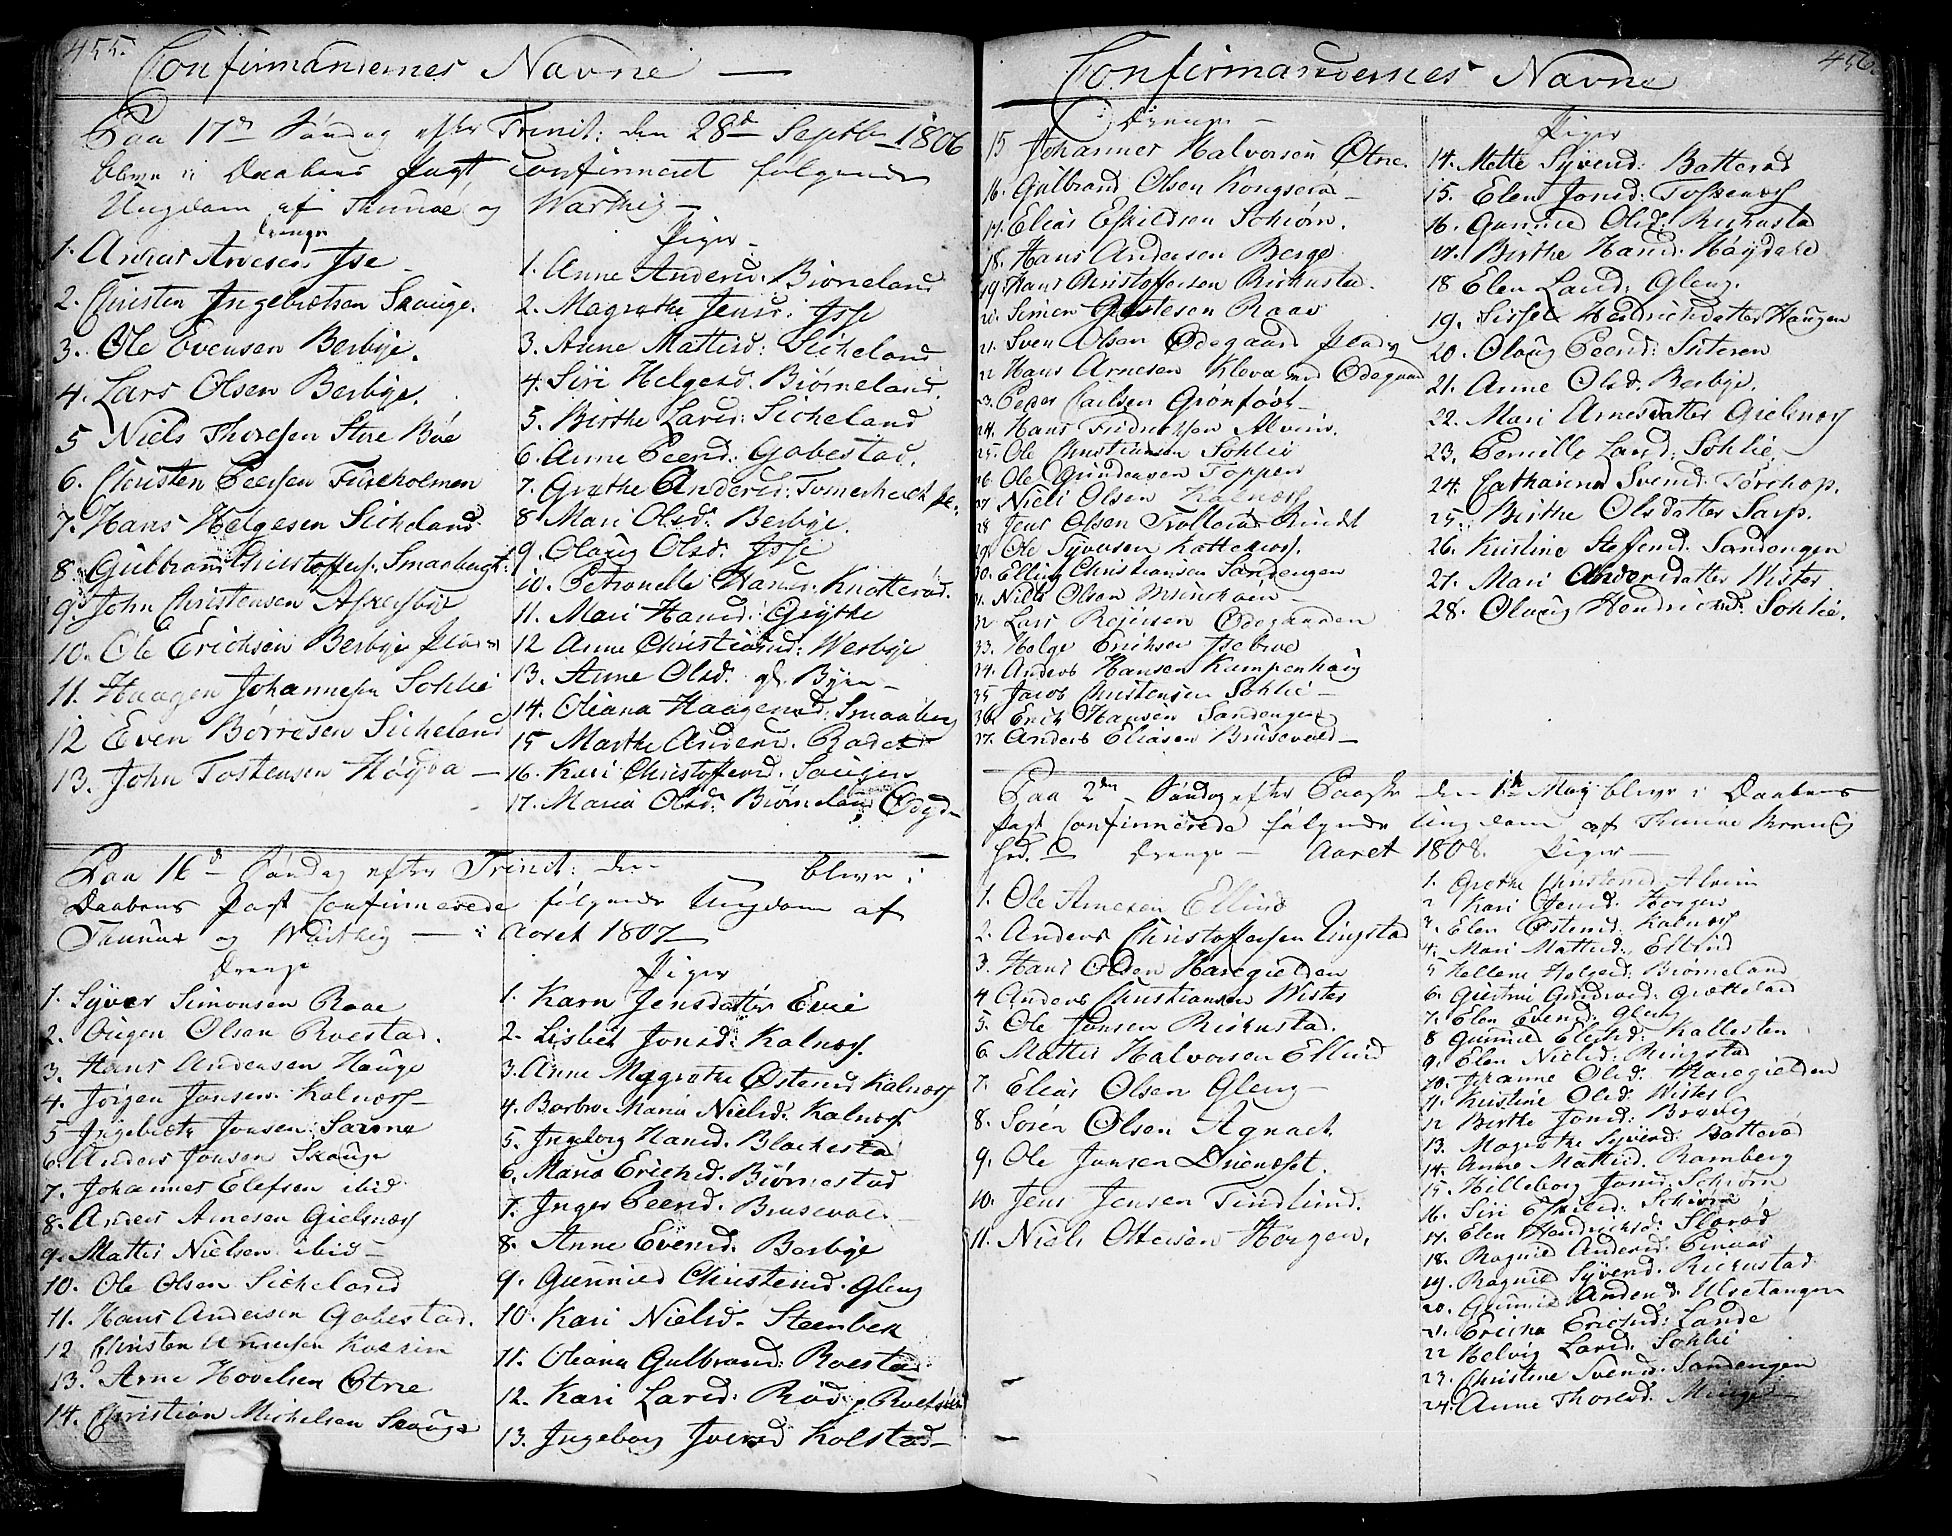 455.
Confirmandernes Navne —
Paa 17de Søndag efter Trinit: den 28d Septbr 1806
bleve i Daabens Pagt confirmeret følgende
Ungdom af Thunøe og Warthig —
Drenge
1. Arvesen Ise
2. Christen Ingebretsen Skauge.
3. Ole Evensen Berbye.
4. Lars Olsen Berbye.
5 Niels Thoresen Store Bøe
6. Christen Peersen Tureholmen
7. Hans Helgesen Sicheland
8. Gulbrand Christoffers.
9. John Christensen
10. Ole Erichsen Berbye
11. Haagen Johannesen Sohlie
12 Even Børresen Sicheland
13. John Tostensen
Piger —
1. Anne Andersd: Biørneland
2. Magrethe Jensd: Isse
3. Anne Mattisd: Sicheland
4. Siri Helgesd. Biørneland.
5. Birthe Larsd: Sicheland
6. Anne Peersd: Gabestad.
7. Grethe Andersd:
8. Mari Olsd: Berbye.
9. Olaug Olsd: Isse
10. Petronelle Hansd. Knatterød.
11. Mari Hansd: Grythe
12 Anne Christiansd: Wesbye
13. Anne Olsd.
14. Oliana Haagensd: Smaaberg
15 Marthe Andersd. Rødet
16. Kari Christoffersd. Haugen
17. Maria Olsd: Biørneland
Paa 16d Søndag efter Trinit: den bleve i
Daabens Pagt Confirmerede følgende Ungdom af
Thunøe og Warthig — i Aaret 1807
Drenge
1. Syver Simonsen Raae
2. Olsen Roestad.
3. Hans Andersen Hauge
4. Jørgen Jonsen. Kalnæss
5 Ingebret Jonsen:
6. Anders Jonsen Skauge
7. Johannes Elefsen ibid
8. Anders Arnesen Gielsnæss
9. Mattis Nielsen ibid —
10. Ole Olsen Sicheland
11. Hans Andersen Gabestad.
12 Christen
13. Arne Hovelsen Otne
14. Christian Michelsen Skauge
Piger
1. Karn Jensdatter Evie
2. Lisbet Jonsd: Kalnæss.
3. Anne Magrethe Østensd Kalnæss
4. Barbro Maria Nielsd. Kalnæss
5. Ingeborg Hansd: Blachestad
6. Maria Erichsd. Biørnestad
7. Inger Peersd. Brusevold
8. Anne Evensd. Berbye
9. Gunnild Christensd. Gleng
10. Kari Nielsd. Steenbek
11. Oliana Gulbrandsd: Roestad
12. Kari Larsd: Rød
13. Ingeborg Iversd Kolstad —
456.
Confirmandernes Navne
Drenge —
15 Johannes Halvorsen Otne.
16. Gulbrand Olsen Kongsrød —
17. Elias Eskildsen Schiørn.
18. Hans Andersen Berge
19. Hans Christoffersen Richustad.
20. Simen Raae
21. Sven Olsen Ødegaard
22 Hans Arnesen Kleva Ødegaard
23. Peder Carlsen Grønfoss
24. Hans Fridrichsen Alvim.
25. Ole Christiansen Sohlie
26 Ole Gundersen Toppen
27 Niels Olsen Kalnæss
28 Jens Olsen Trollerød
29. Ole Syversen Kattenæss.
30. Elling Christiansen Sandengen
31. Niels Olsen
32 Lars Ødegaarden
33. Helge Erichsen Isebroe
34. Anders Hansen Kampenhaug
35 Jacob Christensen Sohlie —
36. Erich Hansen Sandengen
37. Anders Eliasen Brusevold —
Piger
14. Mette Syversd: Batterød
15. Elen Jonsd:
16. Gunnild Olsd. Richustad
17. Birthe Hansd. Høydahl
18 Elen Larsd: Gleng.
19. Sissel Hendrichsdatter Haugen
20. Olaug Peersd:
21. Anne Olsd. Berbye.
22. Mari Arnesdatter Gielsnæss
23. Pernille Larsd: Sohlie.
24. Catharina Svensd: Torchop.
25. Birthe Olsdatter Sarp.
26. Kirstine Stefensd. Sandengen
27. Mari Andersdatter Wister
28. Olaug Hendrichsd. Sohlie.
Paa 2den Søndag efter Paaske den 1te May bleve i Daabens
Pagt Confirmerede følgende Ungdom af Thunøe
Drenge — Aaret 1808. Piger —
1. Ole Arnesen Ellind
2. Anders Christoffersen Ringstad
3. Hans Olsen Haregielden
4 Anders Christiansen Wister
5. Ole Jonsen Richustad.
6 Mattis Halvorsen Ellind
7. Elias Olsen Gleng —
8. Søren Olsen Agnalt
9. Ole Jonsen
10. Jens Jensen Tindlund.
11. Niels Ottersen Horgen.
1. Grethe Christensd. Alvim
2 Kari Horgen
3. Elen Østensd: Kalnæss
4. Mari Mattisd: Ellind
5 Hellene Helgesd: Biørneland
6.
7. Elen Evensd: Gleng
8 Gunnild Kallesten
9. Elen Nielsd: Ringstad
10. Johanne Olsd: Haregielden
11. Kirstine Olsd: Wister
12 Birthe Jonsd:
13. Magrethe Syversd: Batterød
14. Anne Mattisd. Ramberg
15. Hilleborg Jonsd. Schiørn
16. Siri Eskildsd: Schiørn
17. Elen Hendrichsd:
18. Ragnild Andersd:
19. Ragnild Syversd. Richustad
20. Gunnild Andersd. Ulsetangen
21. Ericha Erichsd: Lande
22 Helvig Larsd: Sohlie
23. Christine Svensd: Sandengen
24. Anne Thoresd. Minge